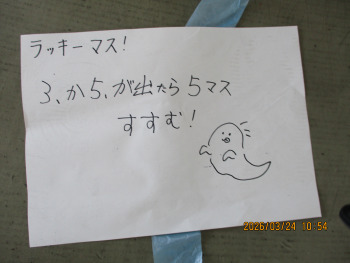 ラッキーマス!
3、か5、が出たら5マス
すすむ!
2026/03/24 10:54